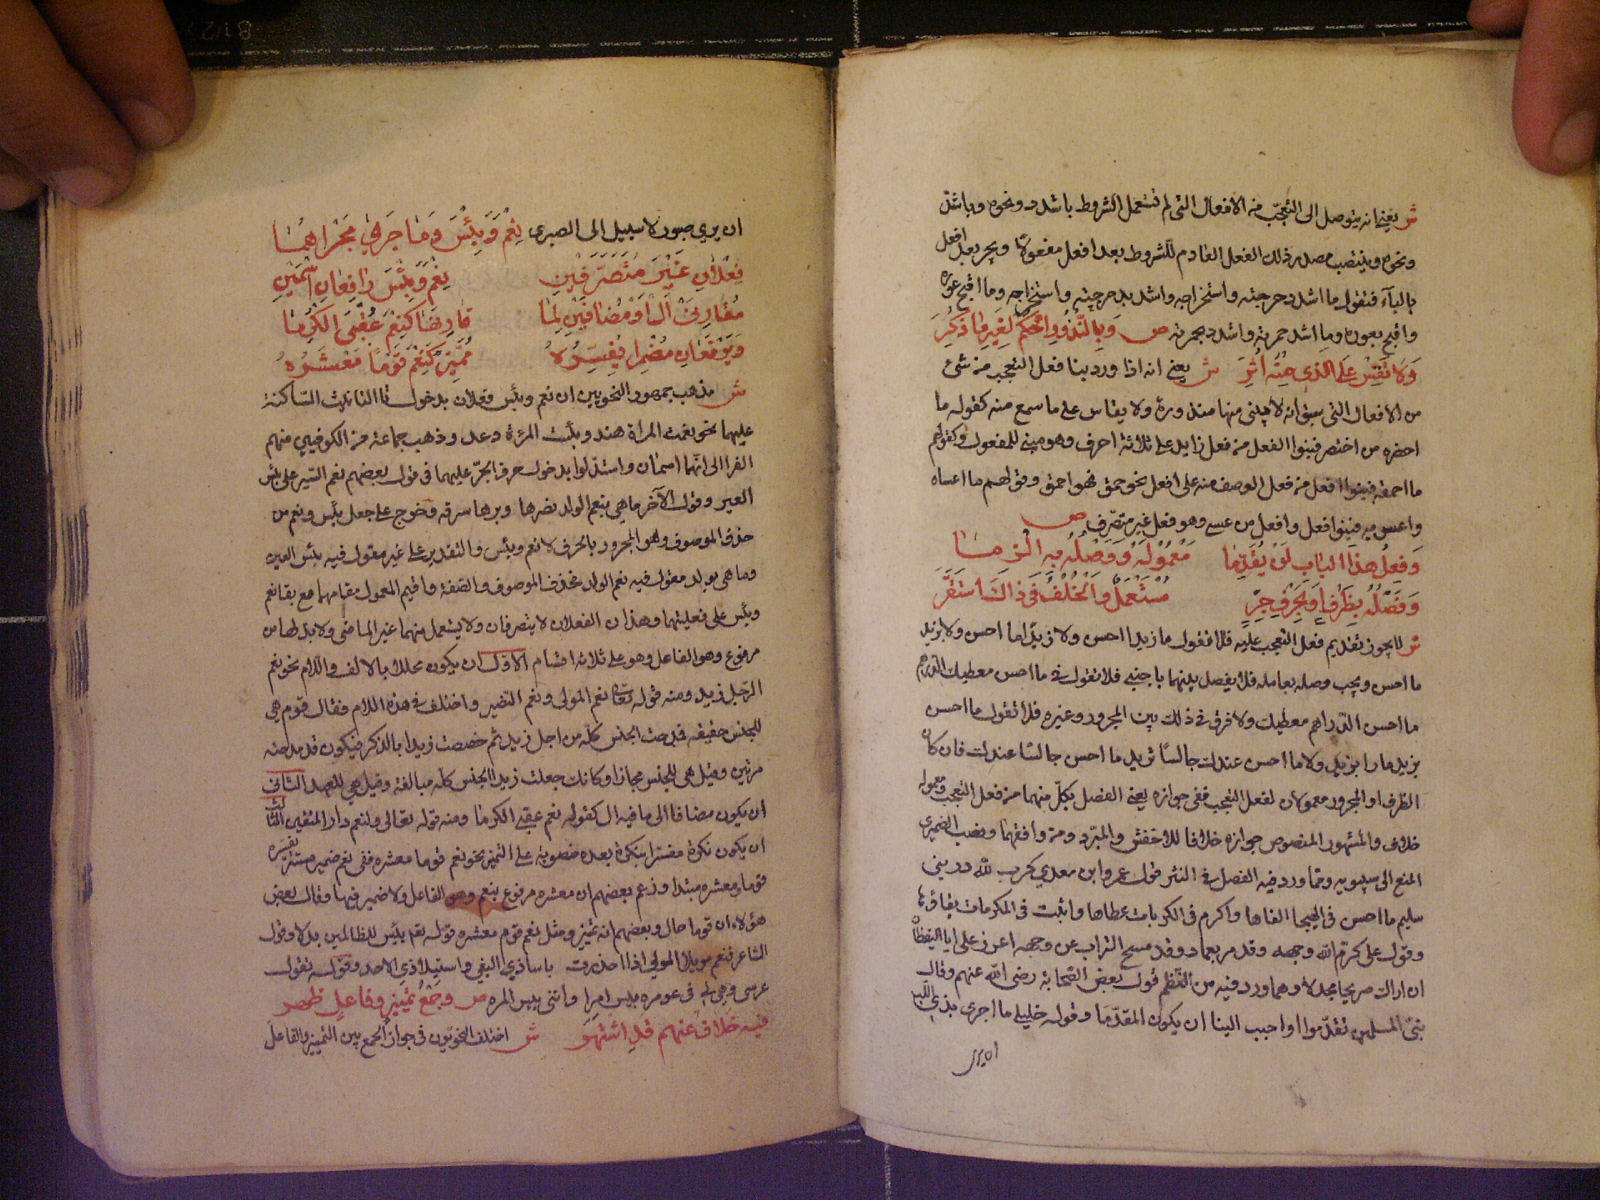 ش يعني انه يتوصل الى التعجب من الافعال التي لم تستعمل الشروط باشدد ونحوه وباشد
ونحوه وينتصب مصدر ذلك الفعل العادم للشروط بعد افعل مفعولا ويجر بعد افعل
بالباء فتقول ما اشد دحرجته واستخراجه واشدد بدحرجته واستخراجه وما اقبح عوره
واقبح بعوره وما اشد حمرته واشدد بحمرته ص وبالندور احكم لغير ما ذكر
ولا تقس على الذي منه أثر ش يعني انه اذا ورد بنا فعل التعجب من شئ
من الافعال التي سبق انه لا يبنى منها منذورة ولا يقاس على ما سمع منه كقوله ما
احضره من اختصر فبنوا افعل من فعل زايد على ثلاثة احرف وهو مبني للمفعول وكقولهم
ما احمقه فبنوا افعل من فعل الوصف منه على افعل نحو حمق فهو احمق وقولهم ما اعساه
واعس به فبنوا افعل وافعل من عسى وهو فعل غير متصرف ص
وفعل هذا الباب لن يقدما معموله ووصله به الزما
وفصله بظرف او بحرف جر مستعمل والخلف في ذاك استقر
ش لا يجوز تقديم فعل التعجب عليه فلا تقول ما زيدا احسن ولا زيدا ما احسن ولا بزيد
ما احسن ويجب وصله بعامله فلا يفصل بينهما باجنبي فلا تقول في ما احسن معطيك الدراهم
ما احسن الدراهم معطيك ولا فرق في ذلك بين المجرور وغيره فلا تقول ما احسن
بزيد مارا بزيد ولا ما احسن عندك جالسا تريد ما احسن جالسا عندك فان كان
الظرف او المجرور معمولان لفعل التعجب ففي جوازه يعني الفصل بكل منهما من فعل التعجب ومعموله
خلاف والمشهور المنصوص جوازه خلافا للاخفش والمبرد ومن وافقهما ونصب الصيمري
المنع الى سيبويه ومما ورد فيه الفصل في النثر قول عمرو ابن معدي كرب لله در بني
سليم ما احسن في الهيجا لقاها واكرم في الكربات عطاها واثبت في المكرمات بقاؤها
وقول علي كرم الله وجهه وقد مر بعمار وقد مسح التراب عن وجهه اعزز علي ابا اليقظان
ان اراك صريعا مجدلا ومما ورد فيه من النظم قول بعض الصحابة رضي الله عنهم وقال
نبي المسلمين تقدموا واحبب الينا ان يكون المقدما وقوله خليلي ما احرى بذي اللب
ان يرى
ان يرى صبورا لا سبيل الى الصبر ص نعم وبئس وما جرى مجراهما
فعلان غير متصرفين نعم وبئس رافعان اسمين
مقارني ال او مضافين لما قارنها كنعم عقبى الكرما
ويرفعان مضمرا يفسره مميز كنعم قوما معشره
ش مذهب جمهور النحويين ان نعم وبئس فعلان بدخول تا التانيث الساكنة
عليهما نحو نعمت المراة هند وبئست المرءة دعد وذهب جماعة من الكوفيين منهم
الفرا الى انهما اسمان واستدلوا بدخول حرف الجر عليهما في قول بعضهم نعم السير على بئس
العير وقول الآخر ما هي بنعم الولد نصرها وبرها سرقة وخرج على جعل بئس ونعم من
حذف الموصوف وهو المجرور بالحرف لا نعم وبئس والتقدير على عير مقول فيه بئس العير
وما هي بولد مقول فيه نعم الولد فحذف الموصوف والصفة واقيم المعمول مقامهما مع بقا نعم
وبئس على فعليتهما وهذان الفعلان لا يتصرفان ولا يستعمل منهما غير الماضي ولا بد لهما من
مرفوع وهو الفاعل وهو على ثلاثة اقسام الاول ان يكون محلا بالالف واللام نحو نعم
الرجل زيد ومنه قوله تعالى نعم المولى ونعم النصير واختلف في هذه اللام فقال قوم هي
للجنس حقيقة فمدحت الجنس كله من اجل زيد ثم خصصت زيدا بالذكر فيكون قد مدحته
مرتين وقيل هي للجنس مجازا وكانك جعلت زيدا الجنس كله مبالغة وقيل هي للعهد الثاني
ان يكون مضافا الى ما فيه ال كقوله نعم عقبى الكرما ومنه قوله تعالى ولنعم دار المتقين الثالث
ان يكون نكرة مفسرا بنكرة بعده منصوبة على التمييز نحو نعم قوما معشره ففي نعم ضمير مستتر تفسيره
قوما ومعشره مبتدا وزعم بعضهم ان معشره مرفوع بنعم وهو الفاعل ولا ضمير فيها وقال بعض
هؤلاء ان قوما حال وبعضهم انه تمييز ومثل نعم قوم معشره قوله تعالى بئس للظالمين بدلا وقول
الشاعر لنعم موئلا المولى اذا حذرت باساء ذي البغي واستيلاء ذي الاحن وقوله تقول
عرسي وهي لي في عومره بئس امرا وانني بئس المره ص وجمع تمييز وفاعل ظهر
فيه خلاف عنهم قد اشتهر ش اختلف النحويون في جواز الجمع بين التمييز والفاعل